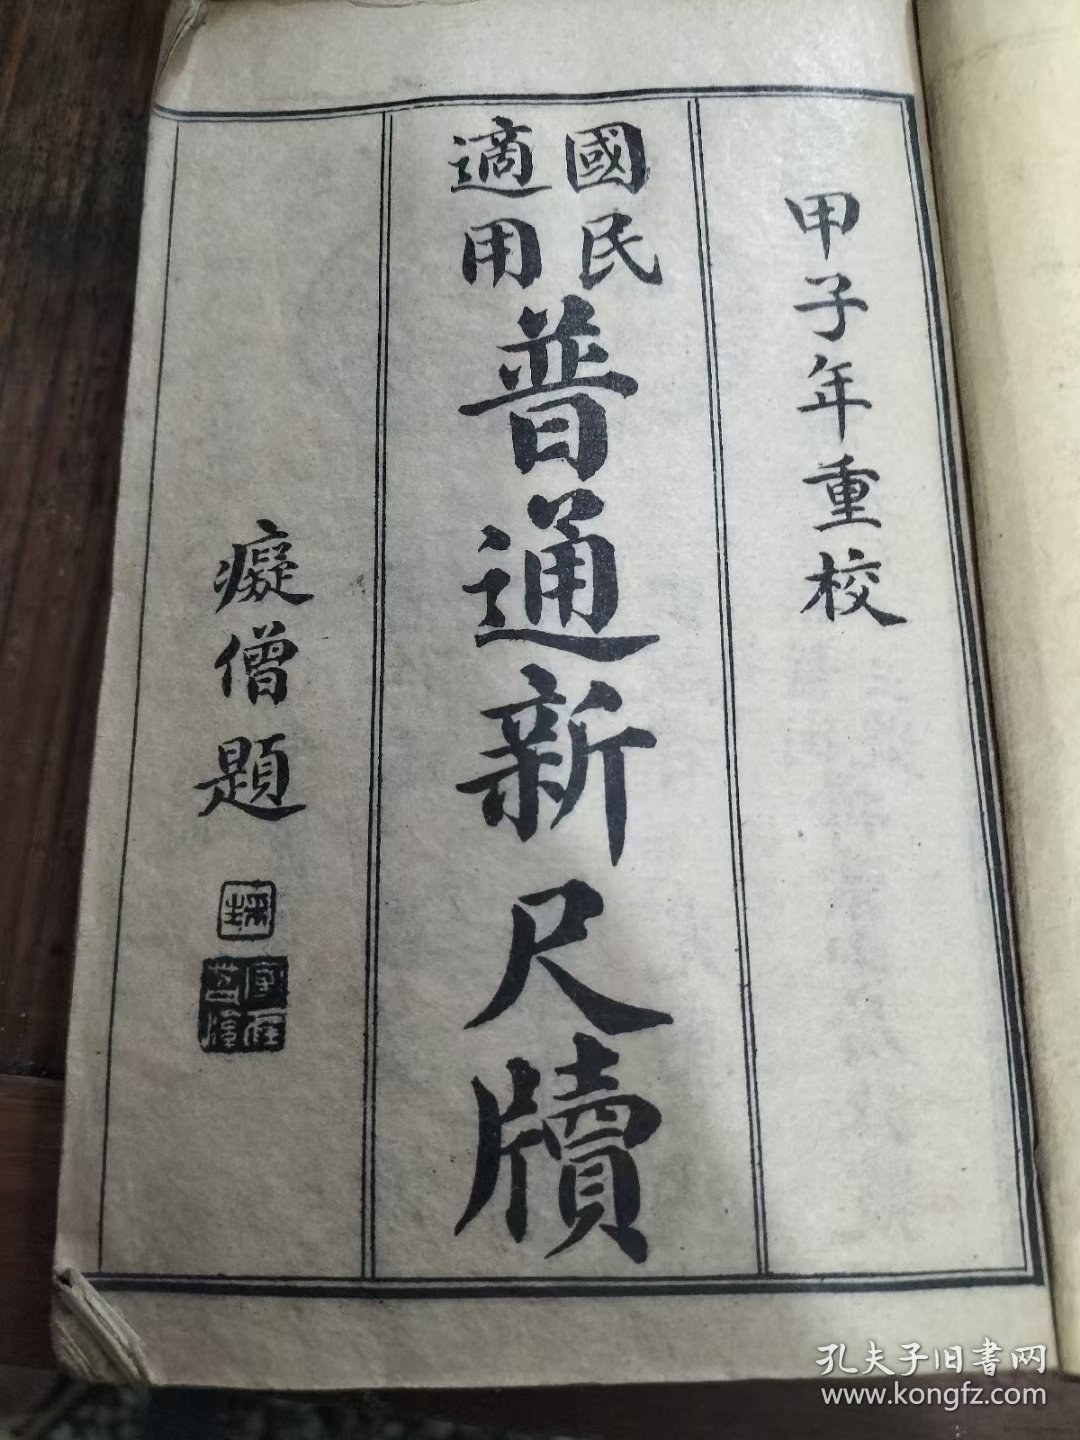 甲子年重校
國民
適用
普通新尺牘
癡僧題
孔夫子旧書网
www.kongfz.com